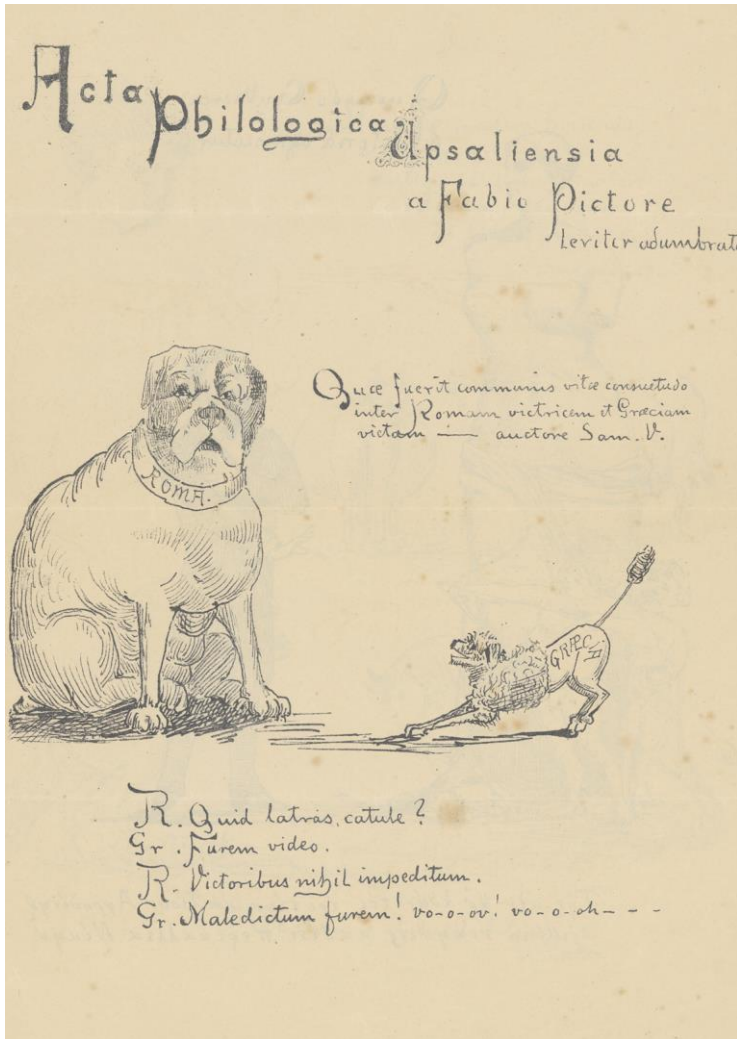 Acta
Philologica
Upsaliensia
a Fabio Pictore
leviter adumbrata
Quæ fuerit communis vitæ consuetudo
inter Romam victricem et Græciam
victam — auctore Sam. V.
ROMA.
GRÆCIA
R. Quid latras, catule?
Gr. Furem video.
R. Victoribus nihil impeditum.
Gr. Maledictum furem! vo-o-ov! vo-o-oh- - -